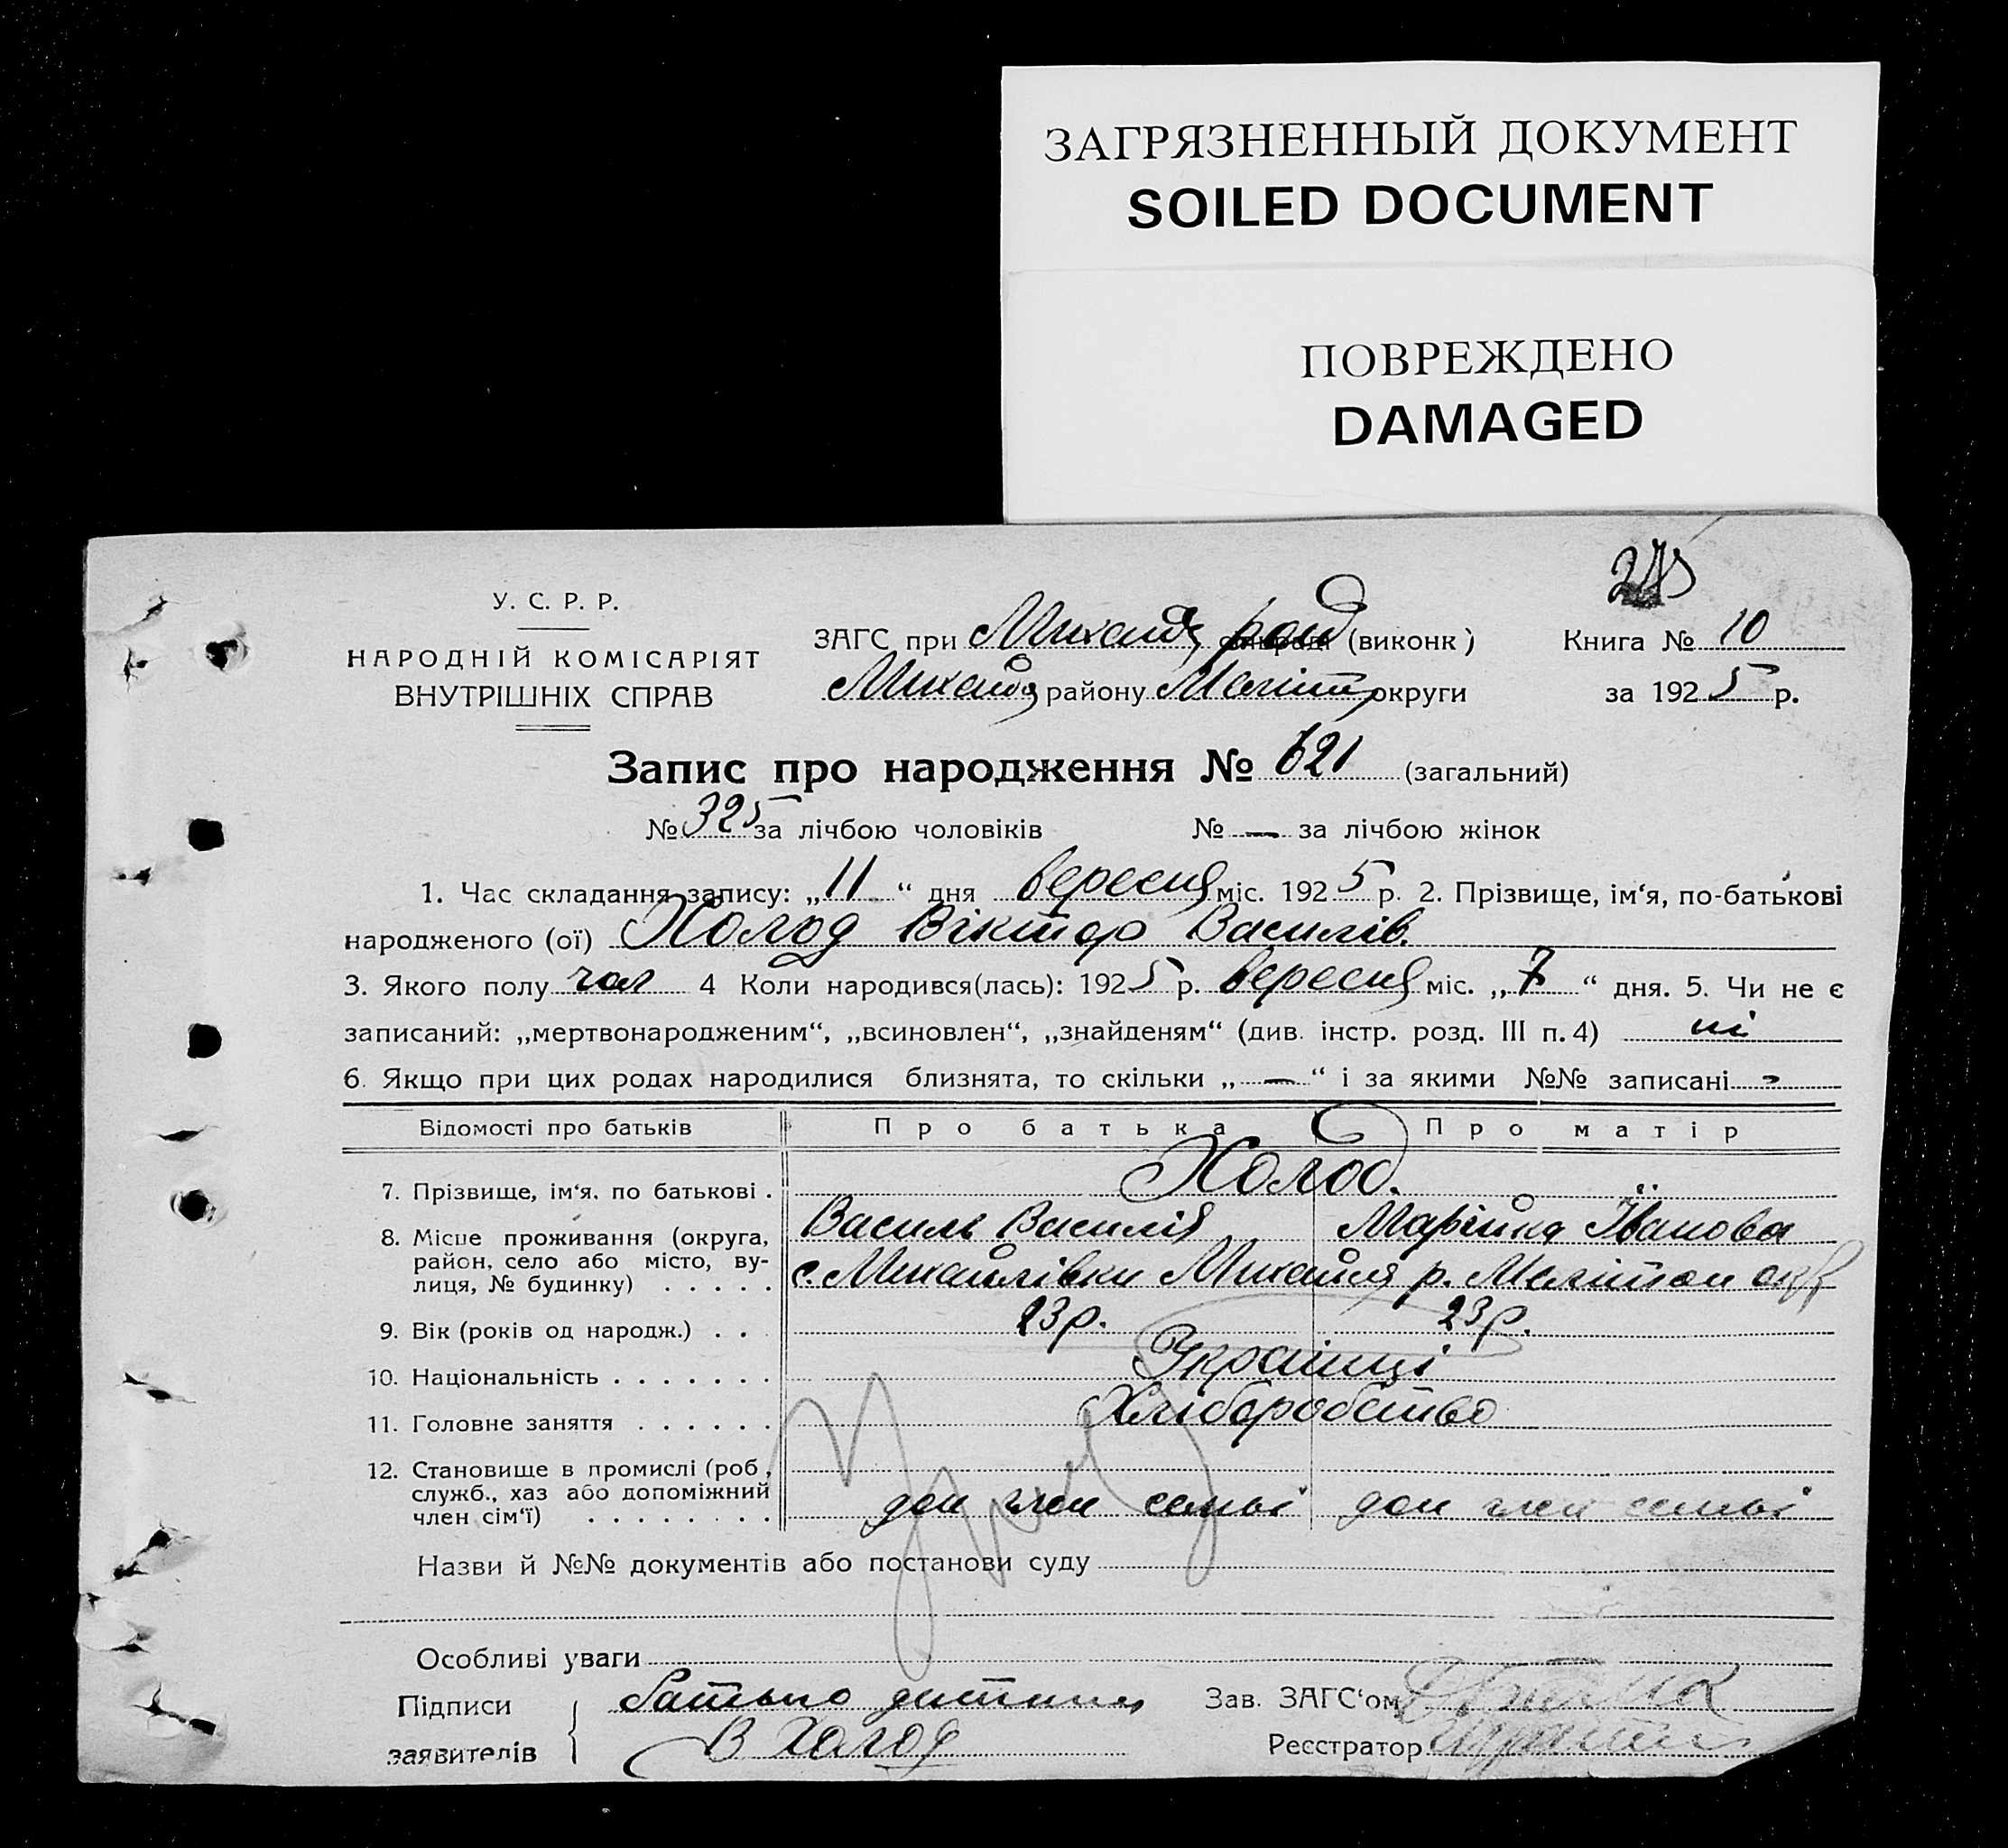 ЗАГРЯЗНЕННЫЙ ДОКУМЕНТ
SOILED DOCUMENT
ПОВРЕЖДЕНО
DAMAGED
У. С. Р. Р.
НАРОДНІЙ КОМІСАРІЯТ
ВНУТРІШНІХ СПРАВ
ЗАГС при Михайл (виконк )
Михайл району Меліт округи
Книга № 10
за 1925 р.
Запис про народження № 621 (загальний)
№ 325 за лічбою чоловіків № — за лічбою жінок
1. Час складання запису: „11“ дня вересня міс. 1925 р. 2. Прізвище, ім‘я, по-батькові
народженого (ої) Холод Віктор Василів.
3. Якого полу чол 4 Коли народився(лась): 1925 р. вересня міс. „7“ дня. 5. Чи не є
записаний: „мертвонародженим“, „всиновлен“, „знайденям“ (див. інстр. розд. III п. 4) ні
6. Якщо при цих родах народилися близнята, то скільки „—“ і за якими №№ записані -
Відомості про батьків Про батька Про матір
7. Прізвище, ім‘я, по батькові . Холод.
Василь Василів Марійка Іванова
8. Місце проживання (округа, район, село або місто, вулиця, № будинку) . . . . . с. Михайлівки Михайл р. Мелітоп окр
9. Вік (років од народж.) . . 23 р. 23 р.
10. Національність . . . . . . . Украінці
11. Головне заняття . . . . . . Хліборобство
12. Становище в промислі (роб, служб., хаз або допоміжний член сім‘ї) . . . . . . . . доп член семьі доп член семьі
Назви й №№ документів або постанови суду
Особливі уваги
Підписи заявителів батько дитини
В Холод
Зав. ЗАГС‘ом
Реєстратор